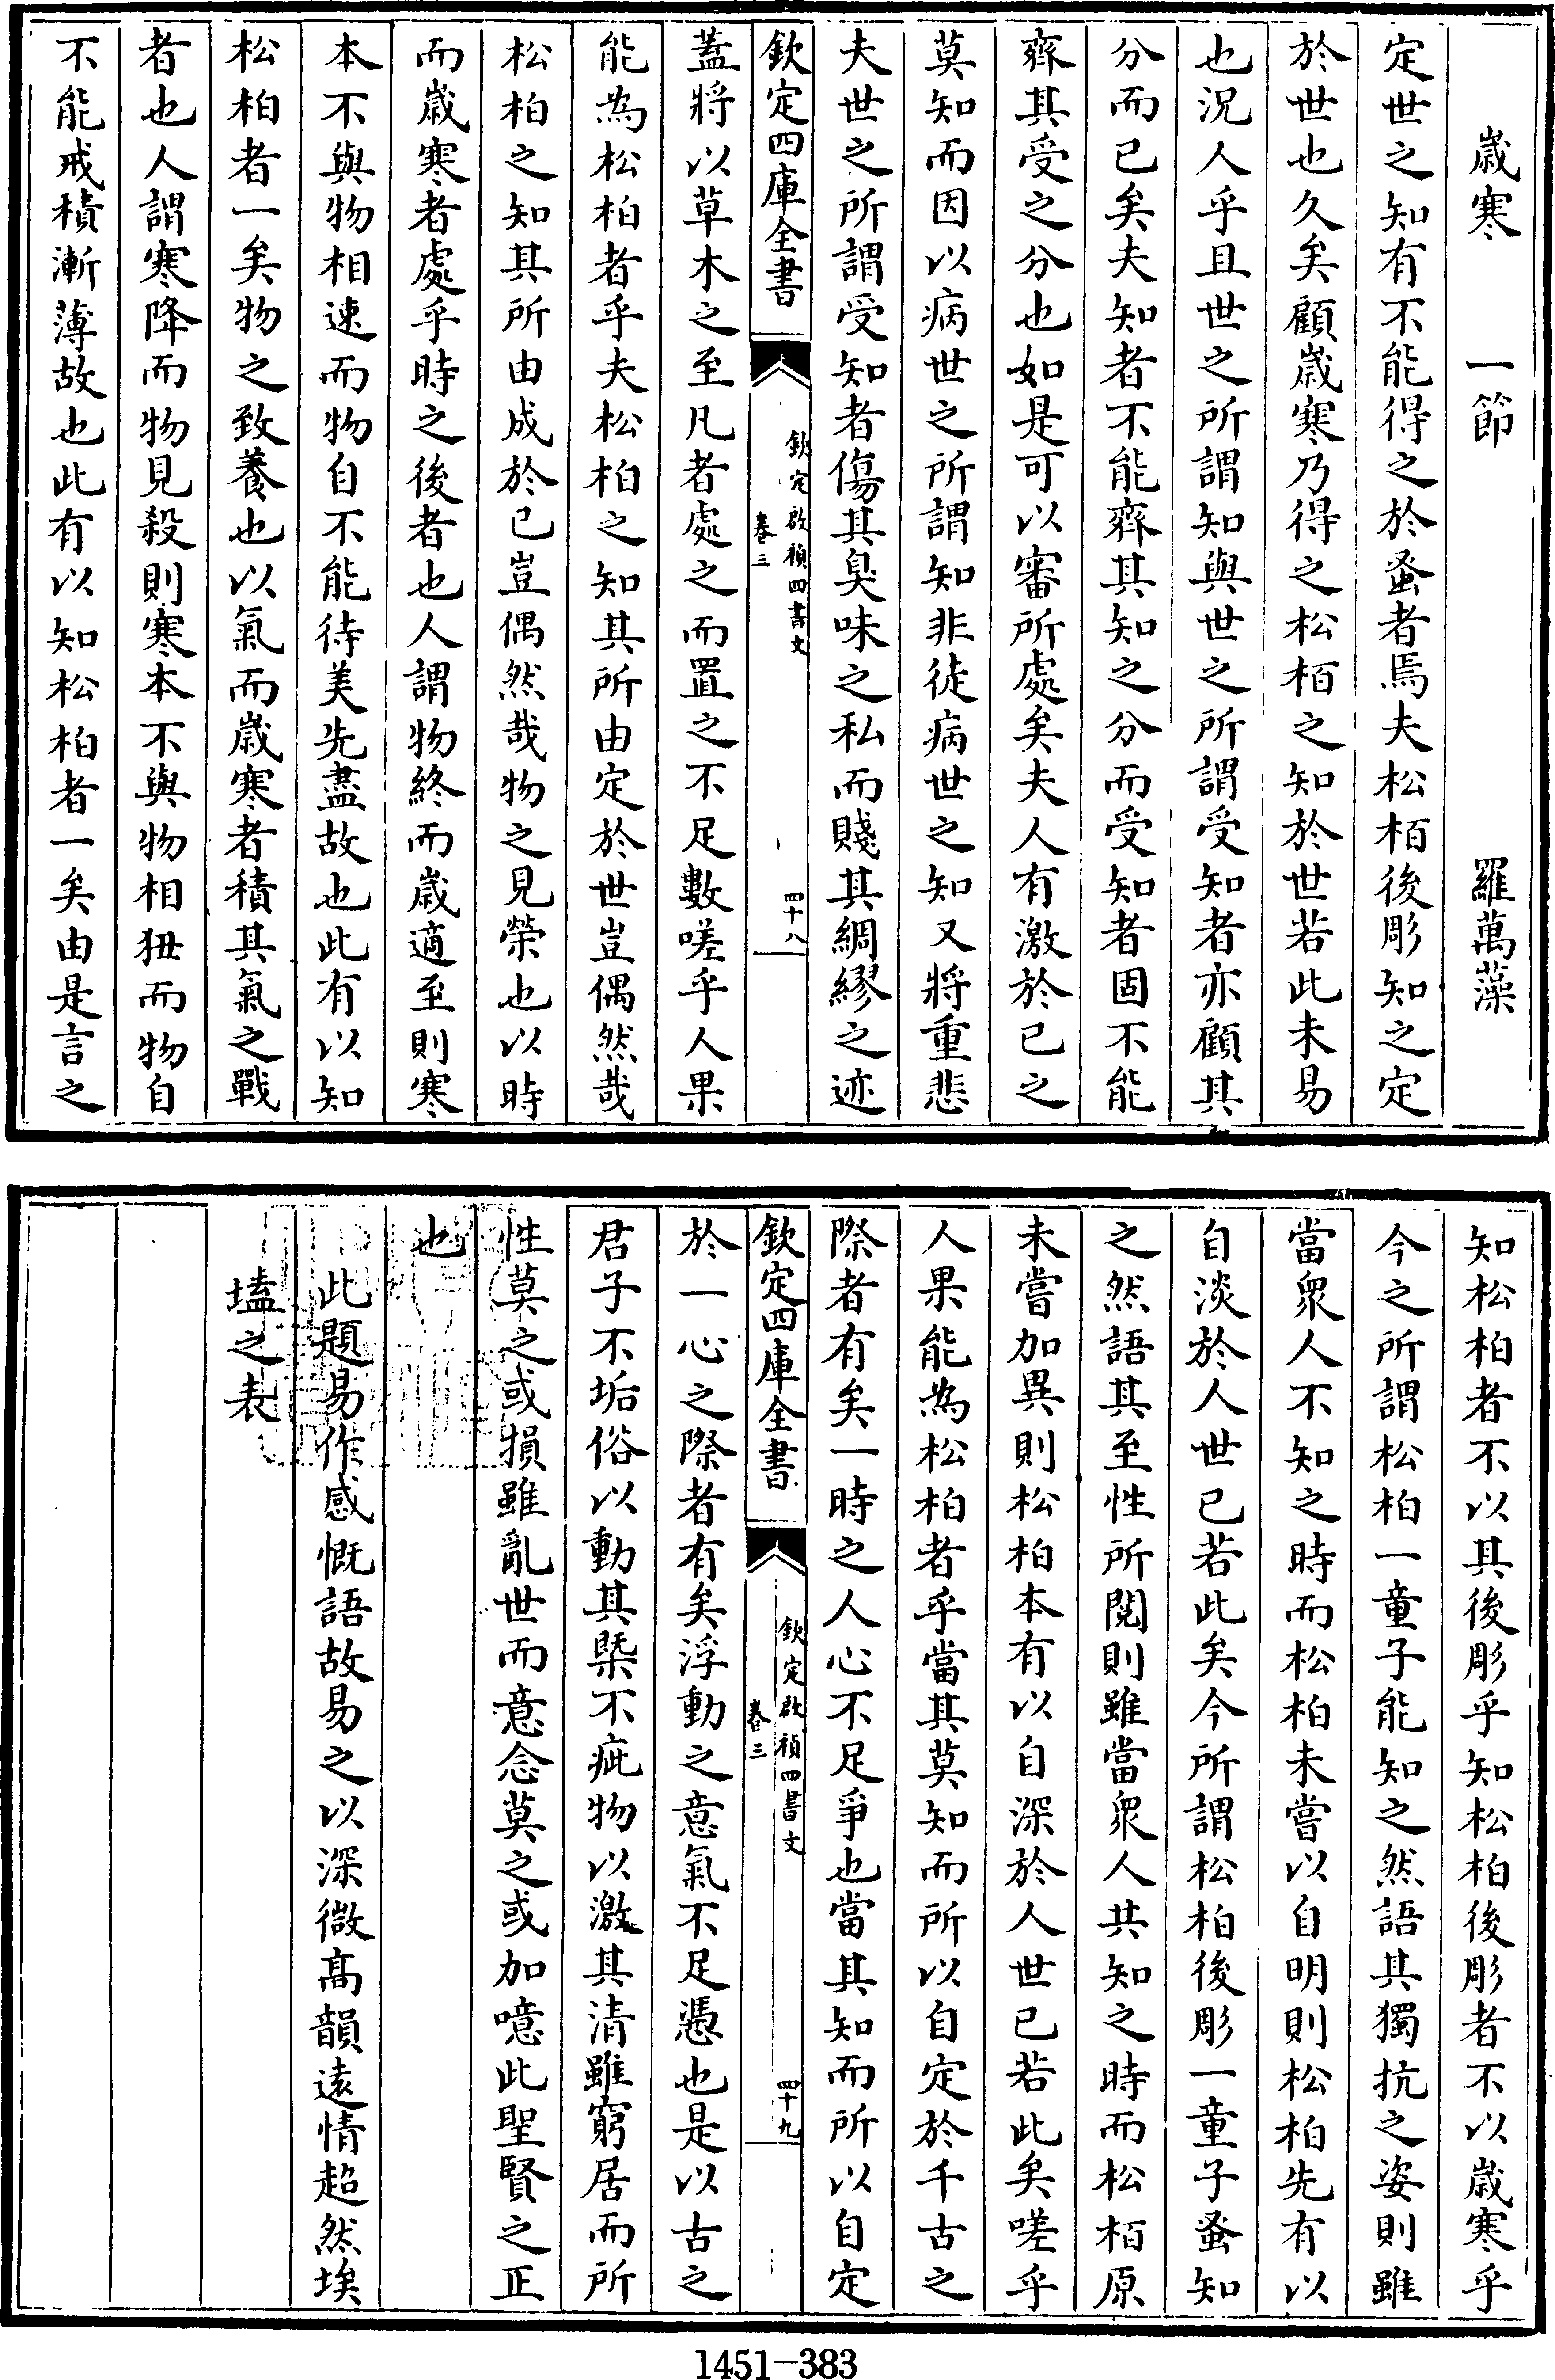 歲寒　一節　羅萬藻
定世之知有不能得之於蚤者焉夫松栢後彫知之定
於世也久矣顧歲寒乃得之松栢之知於世若此未易
也況人乎且世之所謂知與世之所謂受知者亦顧其
分而已矣夫知者不能齊其知之分而受知者固不能
齊其受之分也如是可以審所處矣夫人有激於已之
莫知而因以病世之所謂知非徒病世之知又將重悲
夫世之所謂受知者傷其臭味之私而賤其綢繆之迹
欽定四庫全書
欽定啟禎四書文
卷三
四十八
蓋將以草木之至凡者處之而置之不足數嗟乎人果
能為松柏者乎夫松柏之知其所由定於世豈偶然哉
松柏之知其所由成於已豈偶然哉物之見榮也以時
而歲寒者處乎時之後者也人謂物終而歲適至則寒
本不與物相速而物自不能待美先盡故也此有以知
松柏者一矣物之致養也以氣而歲寒者積其氣之戰
者也人謂寒降而物見殺則寒本不與物相狃而物自
不能戒積漸薄故也此有以知松柏者一矣由是言之
知松柏者不以其後彫乎知松柏後彫者不以歲寒乎
今之所謂松柏一童子能知之然語其獨抗之姿則雖
當衆人不知之時而松柏未嘗以自明則松柏先有以
自淡於人世已若此矣今所謂松柏後彫一童子蚤知
之然語其至性所閱則雖當衆人共知之時而松栢原
未嘗加異則松柏本有以自深於人世已若此矣嗟乎
人果能為松柏者乎當其莫知而所以自定於千古之
際者有矣一時之人心不足爭也當其知而所以自定
欽定四庫全書
欽定啟禎四書文
卷三
四十九
於一心之際者有矣浮動之意氣不足憑也是以古之
君子不垢俗以動其槩不疵物以激其清雖窮居而所
性莫之或損雖亂世而意念莫之或加噫此聖賢之正
也
此題易作感慨語故易之以深微高韻遠情超然埃
壒之表
1451-383